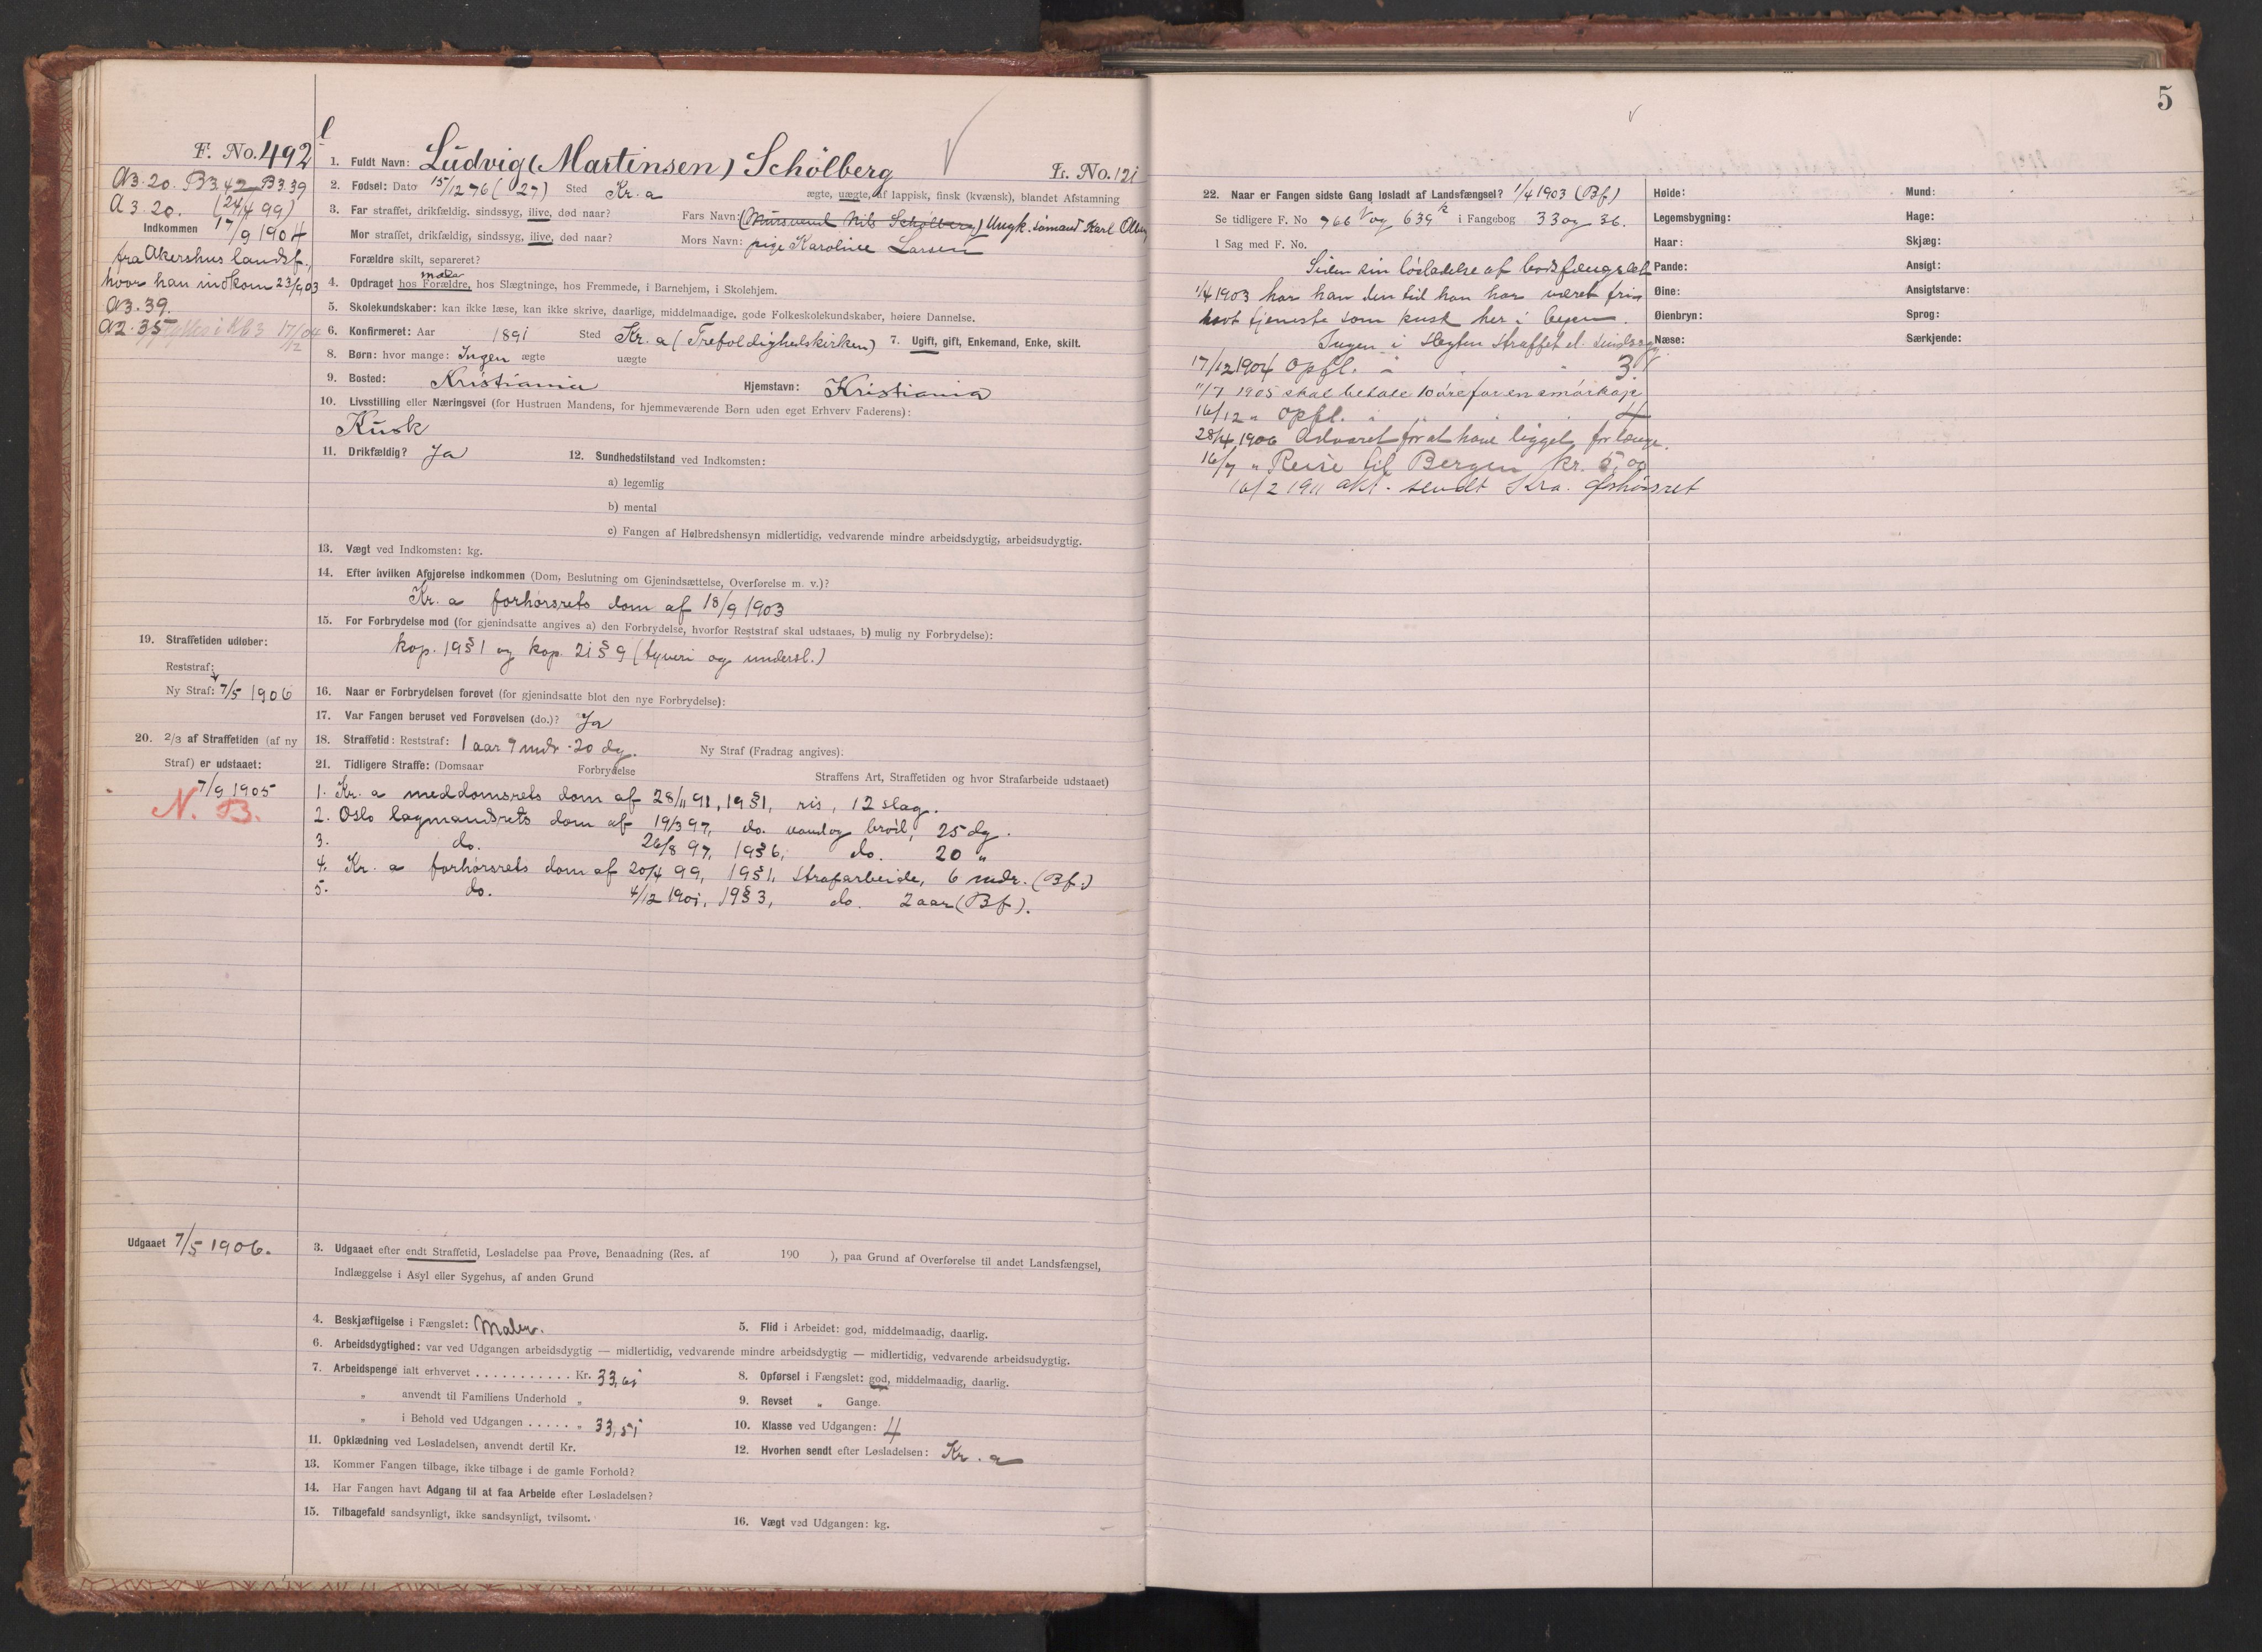 F. No. 492
A3.20. B3.42 B3.39
A3.20. (24/4 99)
Indkommen 17/9 1904
fra Akershus landsf.,
hvor han indkom 23/9 03
A3.39.
A2.35
1. Fuldt Navn: Ludvig (Martinsen) Schölberg Fr. No. 121
2. Fødsel: Dato 15/12 76 (27) Sted Kr.a ægte, uægte, af lappisk, finsk (kvænsk), blandet Afstamning
3. Far straffet, drikfældig, sindssyg, ilive, død naar? Fars Navn: (Murswend Nils Schølberg) Ungk. sømand Karl
Mor straffet, drikfældig, sindssyg, ilive, død naar? Mors Navn: pige Karoline Larsen
Forældre skilt, separeret?
moder
4. Opdraget hos Forældre, hos Slægtninge, hos Fremmede, i Barnehjem, i Skolehjem.
5. Skolekundskaber: kan ikke læse, kan ikke skrive, daarlige, middelmaadige, gode Folkeskolekundskaber, høiere Dannelse.
6. Konfirmeret: Aar 1891 Sted Kr.a (Trefoldighedskirken) 7. Ugift, gift, Enkemand, Enke, skilt.
8. Børn: hvor mange: Ingen ægte uægte
9. Bosted: Kristiania Hjemstavn: Kristiania
10. Livsstilling eller Næringsvei (for Hustruen Mandens, for hjemmeværende Børn uden eget Erhverv Faderens):
Kusk
11. Drikfældig? Ja 12. Sundhedstilstand ved Indkomsten:
a) legemlig
b) mental
c) Fangen af Helbredshensyn midlertidig, vedvarende mindre arbeidsdygtig, arbeidsudygtig.
13. Vægt ved Indkomsten: kg.
14. Efter hvilken Afgjørelse indkommen (Dom, Beslutning om Gjenindsættelse, Overførelse m. v.)?
Kr.a forhørsrets dom af 18/9 1903
15. For Forbrydelse mod (for gjenindsatte angives a) den Forbrydelse, hvorfor Reststraf skal udstaaes, b) mulig ny Forbrydelse):
kap. 19 § 1 og kap. 21 § 9 (tyveri og undersl.)
19. Straffetiden udløber:
Reststraf:
Ny Straf: 7/5 1906
16. Naar er Forbrydelsen forøvet (for gjenindsatte blot den nye Forbrydelse):
17. Var Fangen beruset ved Forøvelsen (do.)? Ja
20. 2/3 af Straffetiden (af ny
Straf) er udstaaet:
7/9 1905
N. B.
18. Straffetid: Reststraf: 1 aar 9 mdr 20 dg. Ny Straf (Fradrag angives):
21. Tidligere Straffe: (Domsaar Forbrydelse Straffens Art, Straffetiden og hvor Strafarbeide udstaaet)
1. Kr.a meddomsrets dom af 28/11 91, 19 § 1, ris, 12 slag.
2. Oslo lagmandsrets dom af 19/3 97, do. vand og brød, 25 dg.
3. do. 26/8 97, 19 § 6, do. 20 "
4. Kr.a forhørsrets dom af 20/4 99, 19 § 1, strafarbeide, 6 mdr. (Bf.)
5. do. 4/12 1901, 19 § 3, do. 2 aar (Bf).
Udgaaet 7/5 1906.
3. Udgaaet efter endt Straffetid, Løsladelse paa Prøve, Benaadning (Res. af 190 ), paa Grund af Overførelse til andet Landsfængsel,
Indlæggelse i Asyl eller Sygehus, af anden Grund
4. Beskjæftigelse i Fængslet: Maler. 5. Flid i Arbeidet: god, middelmaadig, daarlig.
6. Arbeidsdygtighed: var ved Udgangen arbeidsdygtig — midlertidig, vedvarende mindre arbeidsdygtig — midlertidig, vedvarende arbeidsudygtig.
7. Arbeidspenge ialt erhvervet . . . . . . . . . . . Kr. 33,61 8. Opførsel i Fængslet: god, middelmaadig, daarlig.
" anvendt til Familiens Underhold " 9. Revset " Gange.
" i Behold ved Udgangen . . . . . " 33,51 10. Klasse ved Udgangen: 4
11. Opklædning ved Løsladelsen, anvendt dertil Kr. 12. Hvorhen sendt efter Løsladelsen: Kr.a
13. Kommer Fangen tilbage, ikke tilbage i de gamle Forhold?
14. Har Fangen havt Adgang til at faa Arbeide efter Løsladelsen?
15. Tilbagefald sandsynligt, ikke sandsynligt, tvilsomt. 16. Vægt ved Udgangen: kg.
5
22. Naar er Fangen sidste Gang løsladt af Landsfængsel? 1/4 1903 (Bf)
Se tidligere F. No 766 V og 639 k i Fangebog 33 og 36.
I Sag med F. No.
Siden sin løsladelse af bodsfængslet
1/4 1903 har han den tid han har været fri
havt tjeneste som kusk her i byen.
Ingen i slegten straffet el. sindssyg
17/12 1904 Opfl. " 3
11/7 1905 skal betale 10 øre for en smørkop
16/12 " Opfl. " 4
28/4 1906 Advaret for at have ligget for længe.
16/7 " Reise til Bergen kr. 5,00
16/2 1911 akt. sendt Kra. forhørsret
Høide: Mund:
Legemsbygning: Hage:
Haar: Skjæg:
Pande: Ansigt:
Øine: Ansigtstarve:
Øienbryn: Sprog:
Næse: Særkjende: